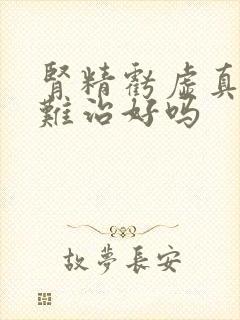 腎精虧虛真
難治好嗎
故夢長安